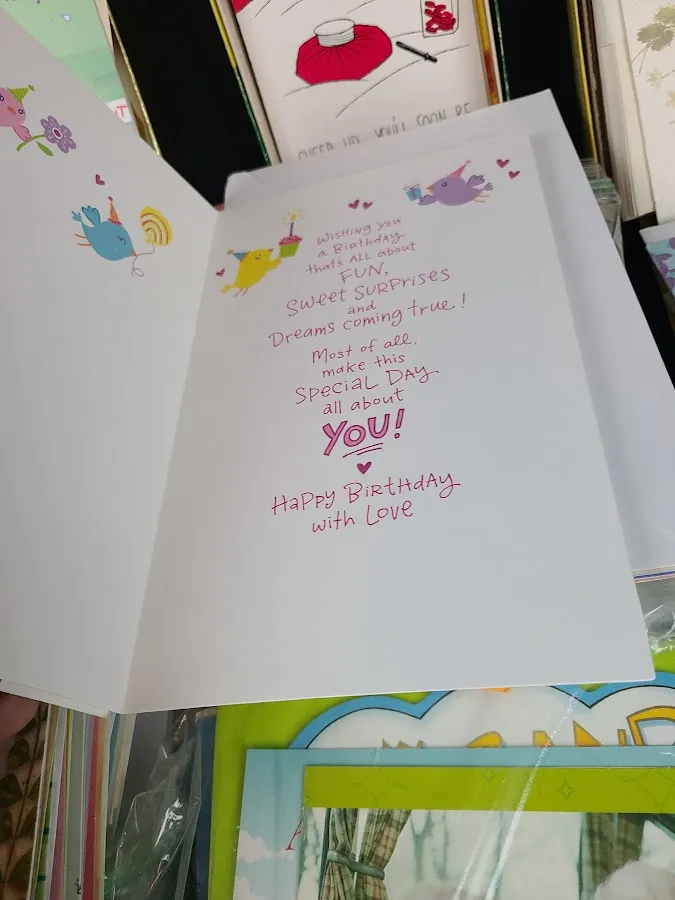 CHEER UP, YOU'LL SOON BE
Wishing You
a Birthday
that's All about
FUN,
Sweet SURPRISES
and
Dreams coming true!
Most of all,
make this
Special Day
all about
YOU!
Happy Birthday
with Love